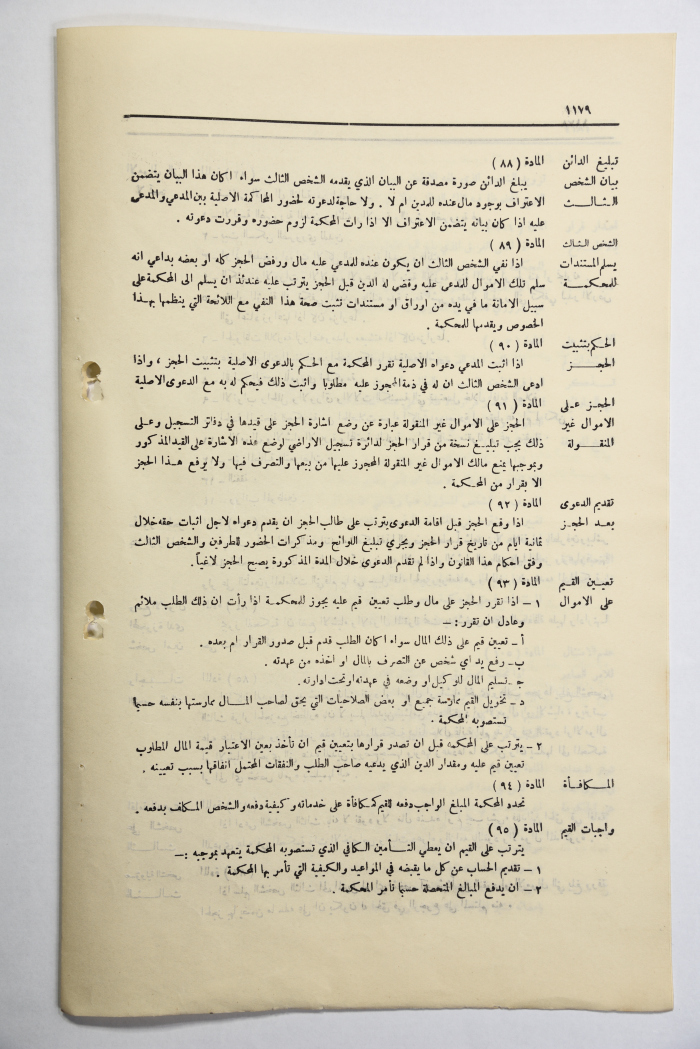 ١١٧٩
تبليغ الدائن المادة ( ٨٨ )
بيان الشخص يبلغ الدائن صورة مصدقة عن البيان الذي يقدمه الشخص الثالث سواء اكان هذا البيان يتضمن
الثالث الاعتراف بوجود مال عنده للمدين ام لا . ولا حاجة لدعوته لحضور المحاكمة الاصلية بين المدعي والمدعى
عليه اذا كان بيانه يتضمن الاعتراف الا اذا رات المحكمة لزوم حضوره وقررت دعوته .
الشخص الثالث المادة ( ٨٩ )
يسلم المستندات اذا نفي الشخص الثالث ان يكون عنده للمدعي عليه مال ورفض الحجز كله او بعضه بداعي انه
للمحكمة سلم تلك الاموال للمدعى عليه وقضى له الدين قبل الحجز يترتب عليه عندئذ ان يسلم الى المحكمة على
سبيل الامانة ما في يده من اوراق او مستندات تثبت صحة هذا النفي مع اللائحة التي ينظمها بهذا
الخصوص ويقدمها للمحكمة .
الحكم بتثبيت المادة ( ٩٠ )
الحجز اذا اثبت المدعي دعواه الاصلية تقرر المحكمة مع الحكم بالدعوى الاصلية بتثبيت الحجز ، واذا
ادعى الشخص الثالث ان له في ذمة المحجوز عليه مطلوبا واثبت ذلك فيحكم له به مع الدعوى الاصلية
الحجز على المادة ( ٩١ )
الاموال غير الحجز على الاموال غير المنقولة عبارة عن وضع اشارة الحجز على قيدها في دفاتر التسجيل وعلى
المنقولة ذلك يجب تبليغ نسخة من قرار الحجز لدائرة تسجيل الاراضي لوضع هذه الاشارة على القيد المذكور
وبموجبها يمنع مالك الاموال غير المنقولة المحجوز عليها من بيعها والتصرف فيها ولا يرفع هذا الحجز
الا بقرار من المحكمة .
تقديم الدعوى المادة ( ٩٢ )
بعد الحجز اذا وقع الحجز قبل اقامة الدعوى يترتب على طالب الحجز ان يقدم دعواه لاجل اثبات حقه خلال
ثمانية ايام من تاريخ قرار الحجز ويجري تبليغ اللوائح ومذكرات الحضور للطرفين والشخص الثالث
وفق احكام هذا القانون واذا لم تقدم الدعوى خلال المدة المذكورة يصبح الحجز لاغياً .
تعيين القيم المادة ( ٩٣ )
على الاموال ١ – اذا تقرر الحجز على مال وطلب تعيين قيم عليه يجوز للمحكمة اذا رأت ان ذلك الطلب ملائم
وعادل ان تقرر : –
أ – تعيين قيم على ذلك المال سواء اكان الطلب قدم قبل صدور القرار ام بعده .
ب – رفع يد اي شخص عن التصرف بالمال او اخذه من عهدته .
ج – تسليم المال للوكيل او وضعه في عهدته او تحت ادارته .
د – تخويل القيم ممارسة جميع او بعض الصلاحيات التي يحق لصاحب المال ممارستها بنفسه حسبما
تستصوبه المحكمة .
٢ – يترتب على المحكمة قبل ان تصدر قرارها بتعيين قيم ان تأخذ بعين الاعتبار قيمة المال المطلوب
تعيين قيم عليه ومقدار الدين الذي يدعيه صاحب الطلب والنفقات المحتمل انفاقها بسبب تعيينه .
المكافأة المادة ( ٩٤ )
تحدد المحكمة المبلغ الواجب دفعه للقيم كمكافأة على خدماته وكيفية دفعه والشخص المكلف بدفعه .
واجبات القيم المادة ( ٩٥ )
يترتب على القيم ان يعطي التأمين الكافي الذي تستصوبه المحكمة يتعهد بموجبه : –
١ – تقديم الحساب عن كل ما يقبضه في المواعيد والكيفية التي تأمر بها المحكمة .
٢ – ان يدفع المبالغ المتحصلة حسبما تأمر المحكمة .